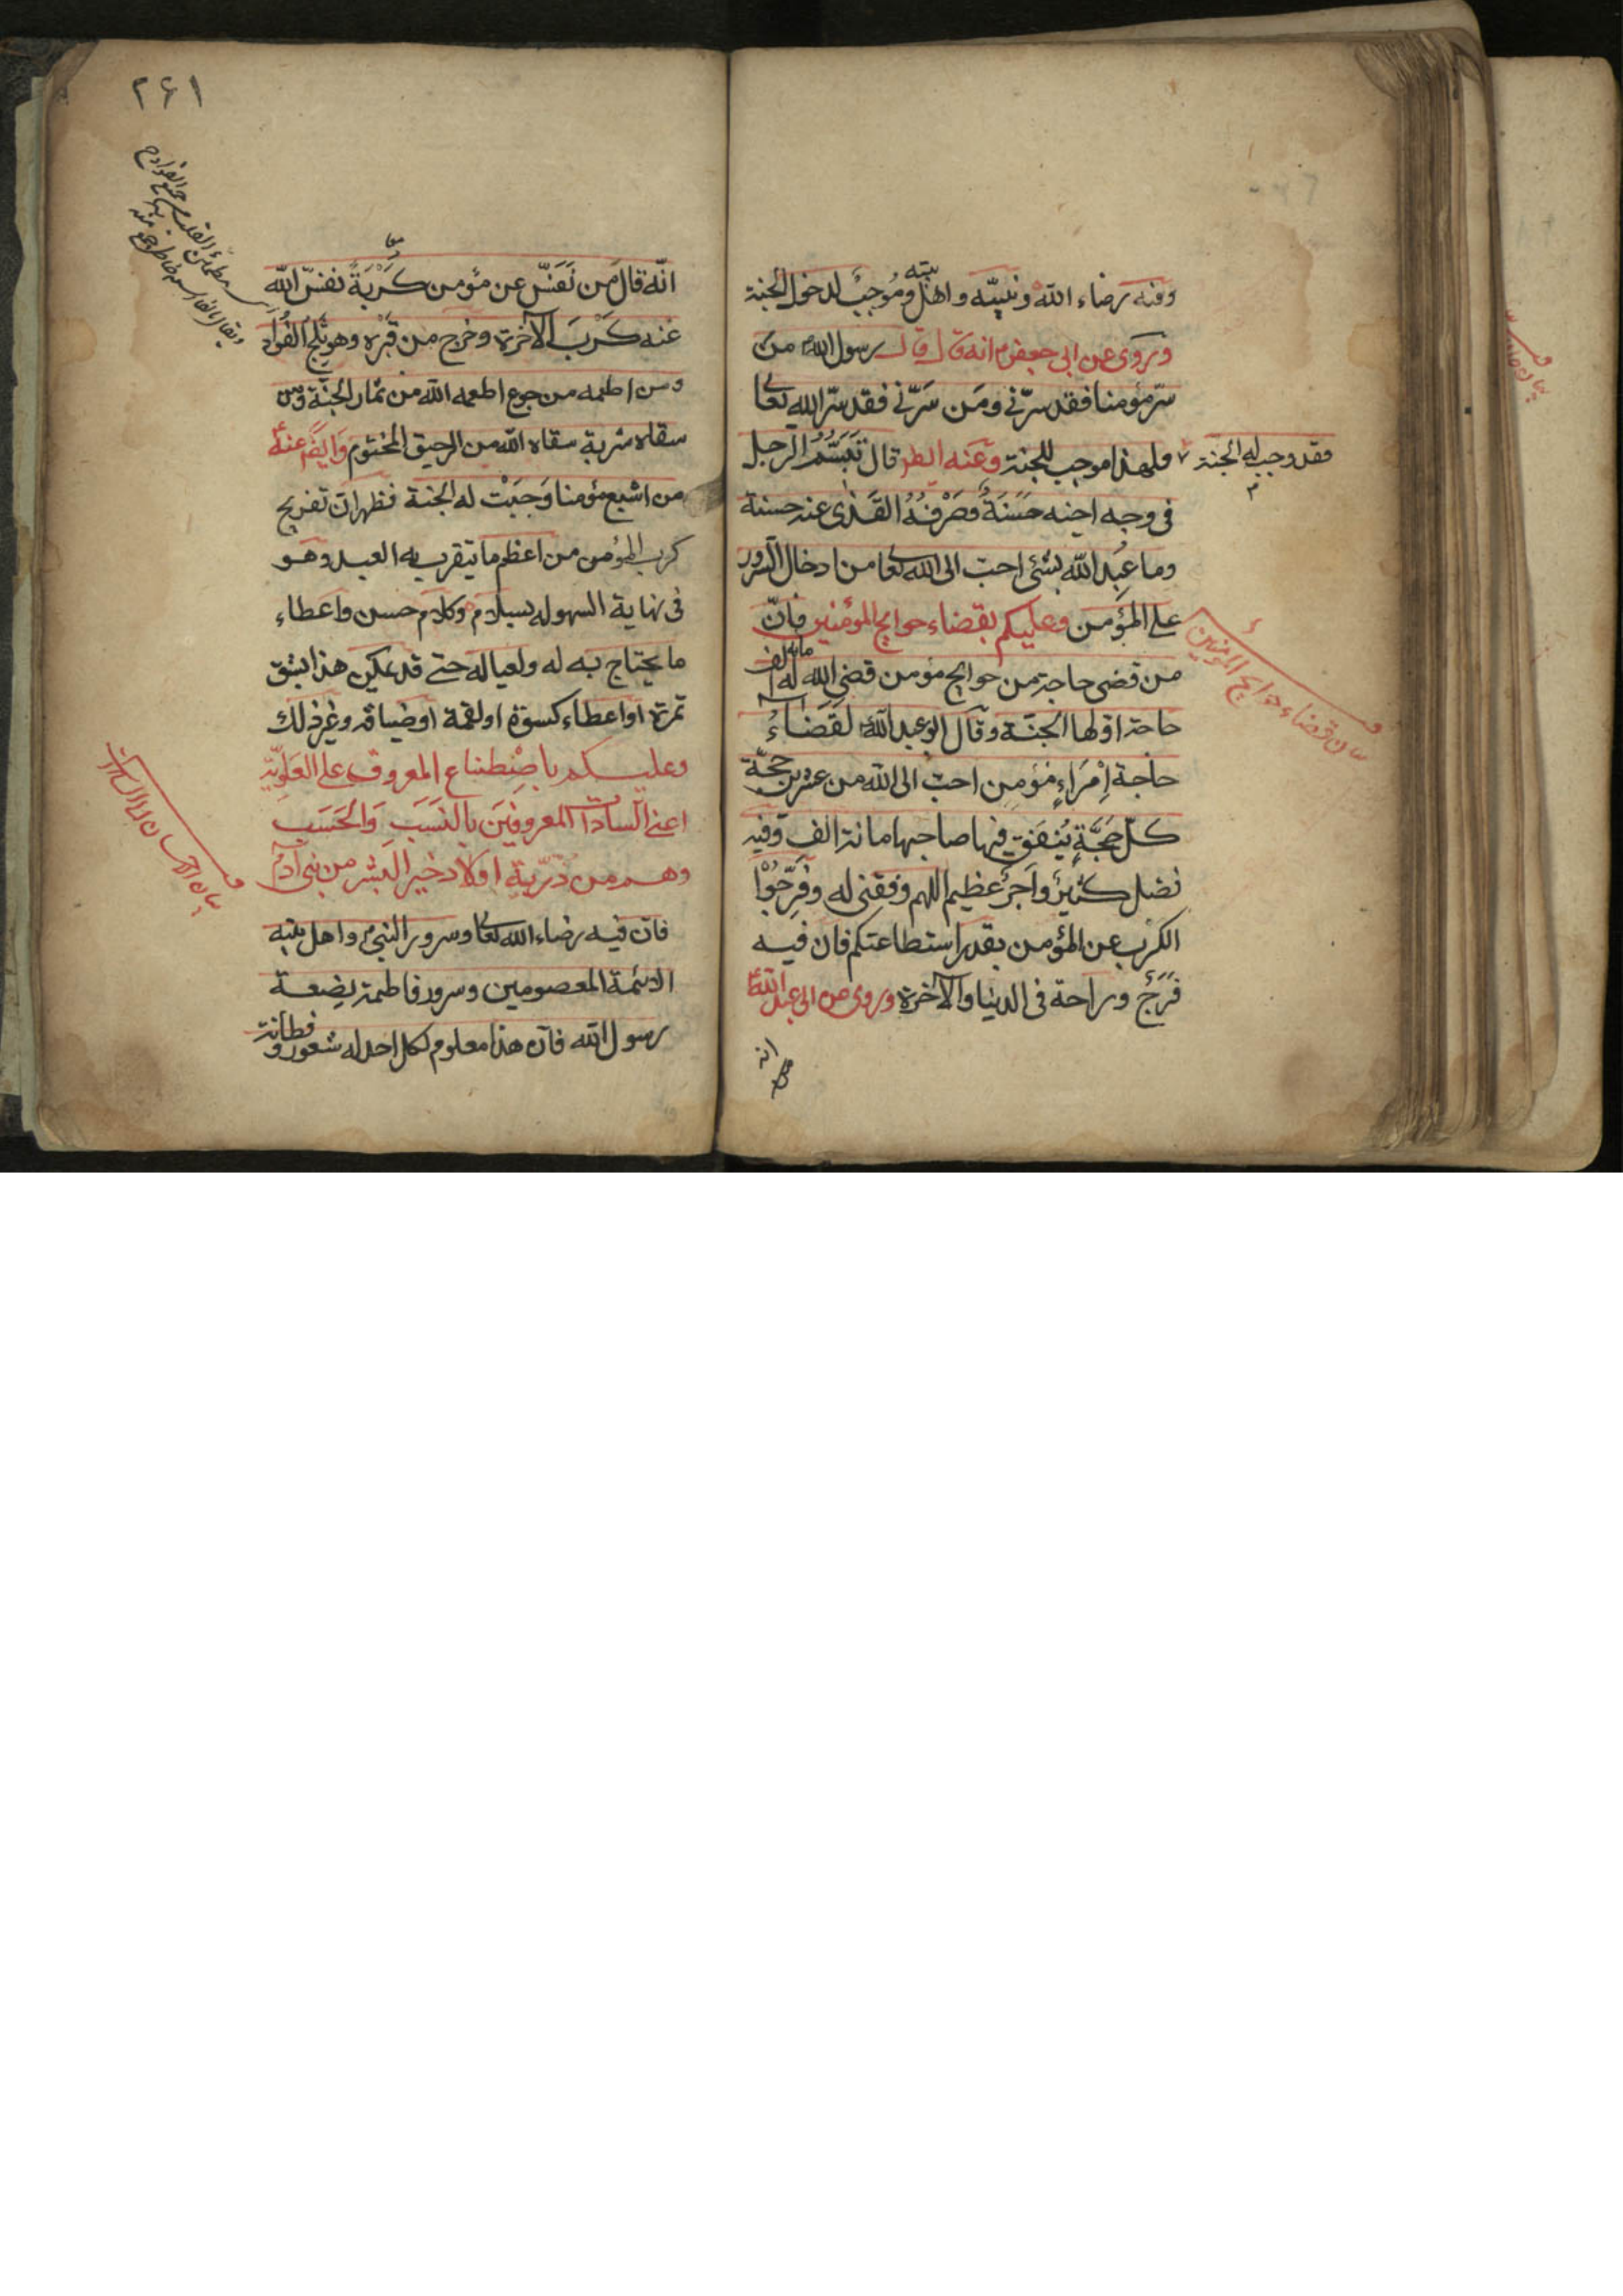 وفيه رضاء الله ونبيّه واهل بيته وموجبٌ لدخول الجنة
وروى عن ابي جعفر ع انه قال قال رسول الله من
سرّ مؤمنا فقد سرّني ومن سَرّني فقد سرّ الله تعا
فقد وجب له الجنة
فلهذا موجب للجنة وعنه ايضا قال تَبَسُّمُ الرجل
في وجه اخيه حَسَنَةٌ وصَرْفُهُ القَذٰى عنه حسنة
وما عُبِد الله بشئ احبّ الى الله تعا من ادخال السرور
على المؤمن وعليكم بقضاء حوايج المؤمنين فانّ
بيان قضاء حوايج المؤمنين
من قضى حاجة من حوايج مؤمن قضى الله له مائة الف
حاجة اولها الجنّة وقال ابو عبد الله لَقَضَاءُ
حاجة اِمْرَاءٍ مؤمن احبّ الى الله من عشرين حجّة
كلّ حَجَّةٍ يُنْفِقُ فيها صاحبها مائة الف وفيه
فضل كثيرٌ واَجرٌ عظيم اللهم وفقني له وفَرِّجُوْا
الكرب عن المؤمن بقدر استطاعتكم فان فيه
فَرَجٌ وراحة في الدنيا والآخرة وروى عن ابي عبد الله
انه
٢٦١
انّه قال مَن نَفَّسَ عن مؤمن كُرْبَةً نفّس الله
عنه كُرَبَ الآخرة وخرج من قَبْره وهو ثَلِجُ الفُؤاد
ومن اطعمه من جوع اطعمه الله من ثمار الجنّة ومن
سقاه شربة سقاه الله من الرحيق المختوم وايضًا عنه
من اشبع مؤمنا وَجَبَتْ له الجنة فظهر ان تفريج
كرب المؤمن من اعظم ما يتقرب به العبد وهو
في نهاية السهولة بسلام وكلام حسن واعطاء
ما يحتاج به له ولعياله حتى قد يمكن هذا بشق
تمرة او اعطاء كسوة او لقمة او ضيافة وغير ذلك
وعليكم باصْطِناع المعروف على العَلَوِيّة
اعني السادات المعروفين بالنَسَبِ وَالحَسَبِ
وهم من ذرّية اولاد خير البشر من بني آدم
فان فيه رضاء الله تعا وسرور النبي ص واهل بيته
الائمة المعصومين وسرور فاطمة بضعة
رسول الله فان هذا معلوم لكل احد له شعور وفطانة